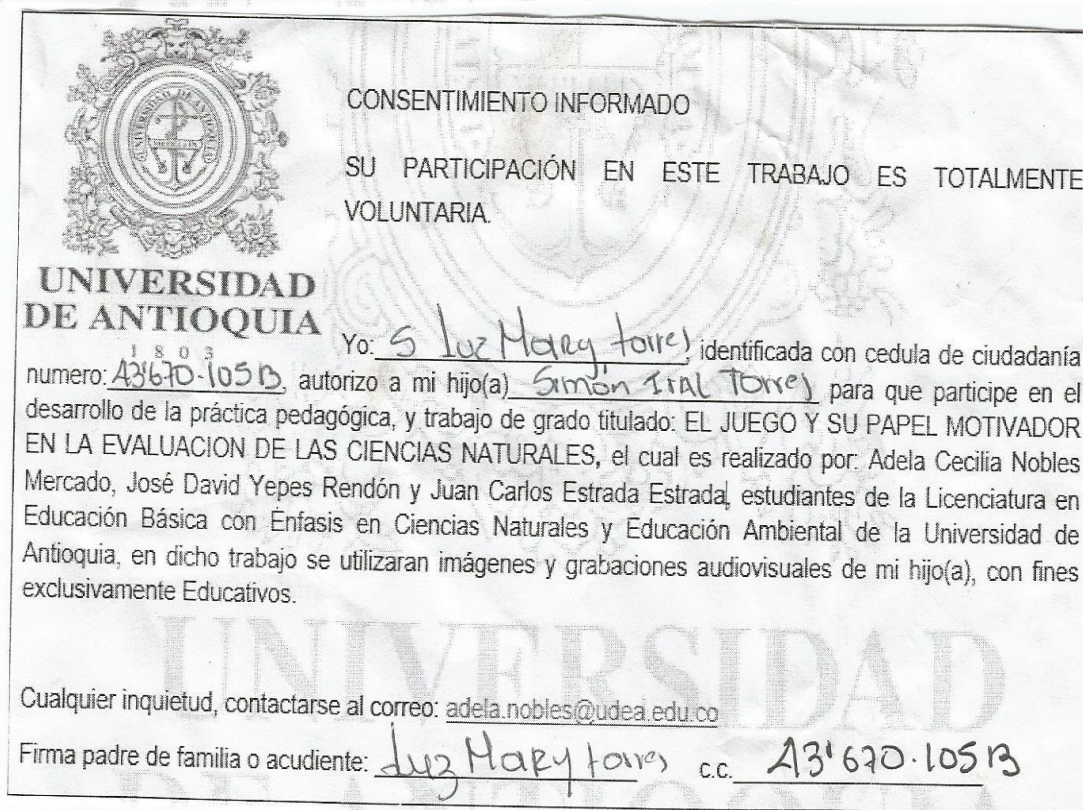 CONSENTIMIENTO INFORMADO
SU PARTICIPACIÓN EN ESTE TRABAJO ES TOTALMENTE
VOLUNTARIA.
UNIVERSIDAD
DE ANTIOQUIA
1803
Yo: S Luz Mary torres, identificada con cedula de ciudadanía
numero: A3'670.105B, autorizo a mi hijo(a) Simón Iral Torres para que participe en el
desarrollo de la práctica pedagógica, y trabajo de grado titulado: EL JUEGO Y SU PAPEL MOTIVADOR
EN LA EVALUACION DE LAS CIENCIAS NATURALES, el cual es realizado por: Adela Cecilia Nobles
Mercado, José David Yepes Rendón y Juan Carlos Estrada Estrada, estudiantes de la Licenciatura en
Educación Básica con Énfasis en Ciencias Naturales y Educación Ambiental de la Universidad de
Antioquia, en dicho trabajo se utilizaran imágenes y grabaciones audiovisuales de mi hijo(a), con fines
exclusivamente Educativos.
UNIVERSIDAD
Cualquier inquietud, contactarse al correo: adela.nobles@udea.edu.co
Firma padre de familia o acudiente: Luz Mary torres c.c. A3'670.105B
DE ANTIOQUIA